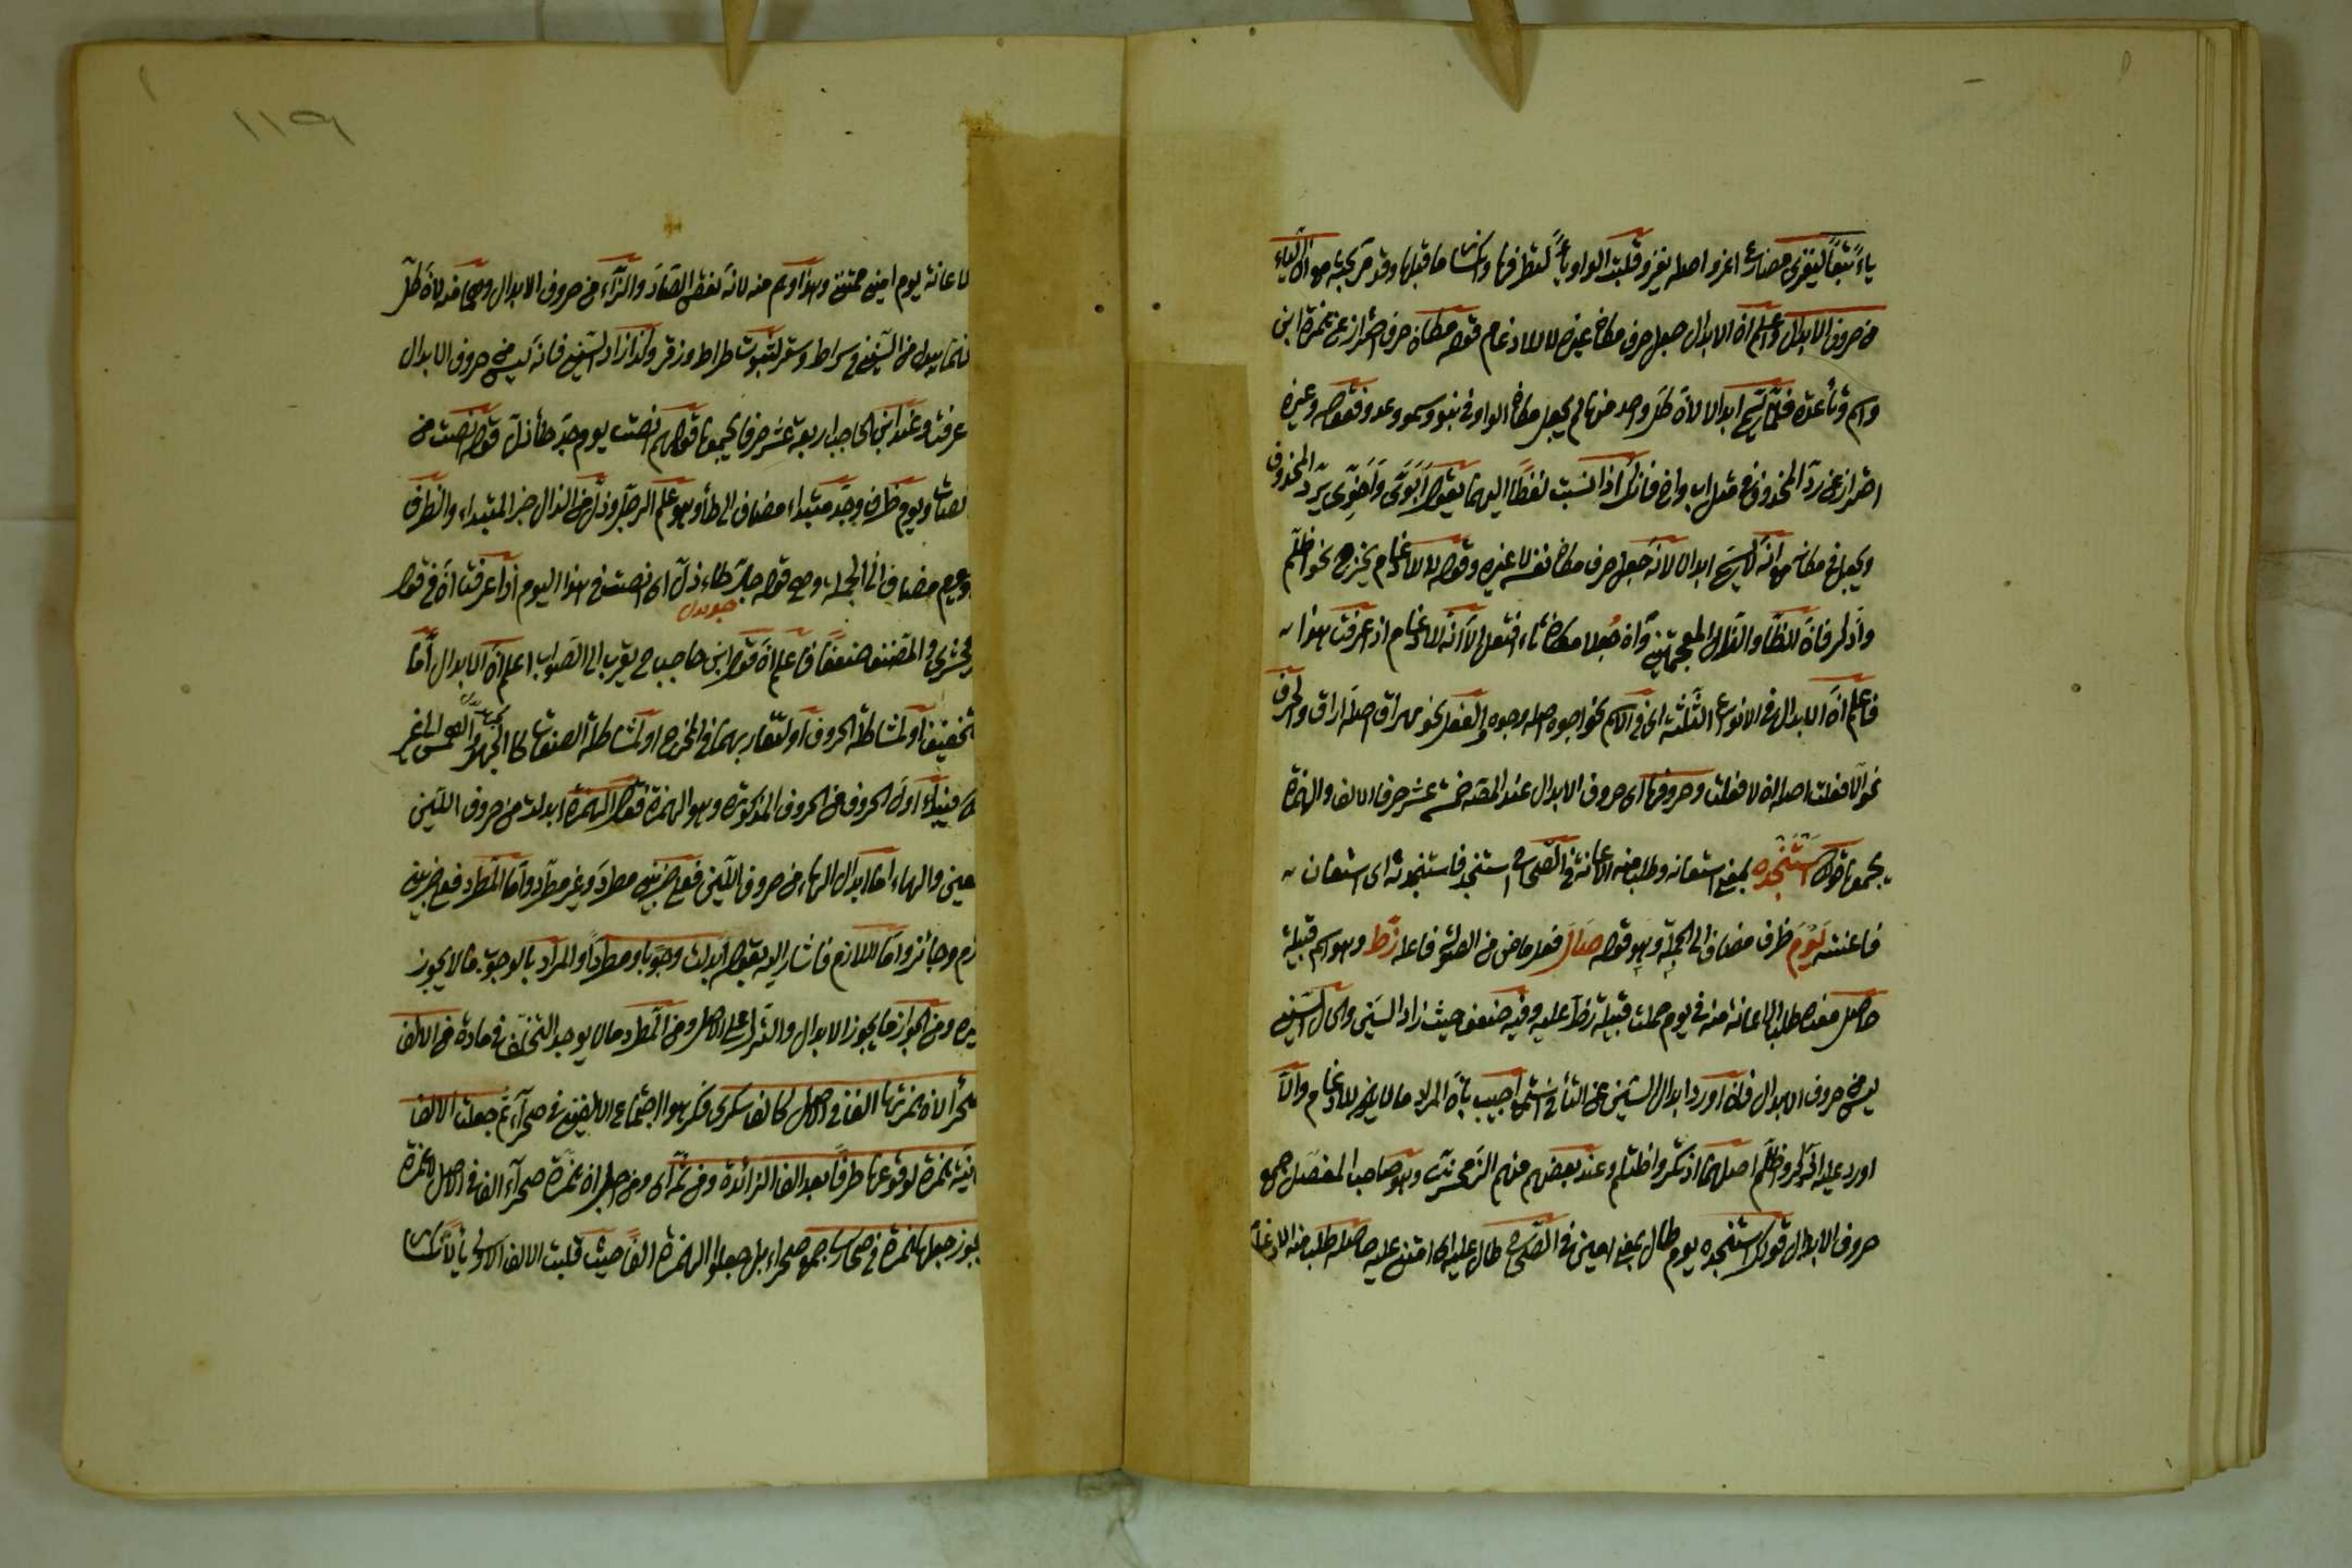 ياءً تبعًا ليغزى مضارع اغزو اصله يغزو قلبت الواو ياءً لتطرفها وانكسار ما قبلها وقد مر بحثه مع ان الياء
من حروف الابدال واعلم ان الابدال جعل حرف مكان غيره لا للادغام قوله مكان حرف احتراز عن همزة ابن
واسم وتاء عدة فلم يسم ابدالا لان كل واحد منها لم يجعل مكان الواو في بنو وسمو وعد وقوله وغيره
احتراز عن رد المحذوف في مثل اب واخ فانك اذا نسبت لفظًا اليهما تقول أبَوِىّ وأخَوِىّ برد المحذوف
ويجعل في مكانه مع انه لا يسمى ابدالا لانه جعل حرف مكان نفسه لا غيره وقوله لا للادغام يخرج نحو اظلم
واذكر فان الظاء والذال المعجمتين وان جعلا مكان تاء افتعل الا انه للادغام اذ عرفت هذا
فاعلم ان الابدال في الانواع الثلثة اى في الاسم نحو اجوه اصله وجوه والفعل نحو هراق اصله اراق والحرف
نحو الا فعلت اصله هلا فعلت وحروفه اى حروف الابدال عند المصنف خمسة عشر حرفا الالف والهمزة
يجمعها قولك استنجده بمعنى استعانه وطلب منه الاعانة في الصحاح استنجد فاستنجدته اى استعان
فاعنته يوم ظرف مضاف الى الجملة وهو قوله صال فعل ماض من الصولة فاعله زط وهو اسم قبيلة
حاصل معناه طلب الاعانة منه في يوم حملت قبيلة زط عليه وفيه ضعف حيث زاد السين والحال السين
ليس من حروف الابدال فان اورد ابدال السين عن التاء في استمع اجيب بان المراد ما لا يكون للادغام والا
اورد عليه اذكر واظلم اصلهما اذتكر واظتلم وعند بعضهم منهم الزمخشرى وهو صاحب المفصل جمع
حروف الابدال قولك استنجده يوم طال بمعنى امتنع في الصحاح طال عليه اى امتنع عليه حاصله طلب منه الاعانة
١١٩
الاعانة يوم امتنع وهذا وهم منه لانه نقض الصاد والزاء من حروف الابدال وهما منه لان كل
منهما يبدل من السين في سراط وسقر لثبوت صراط وزقر وكذا زاد السين فانه ليس من حروف الابدال
عرفت وعند ابن الحاجب اربعة عشر حرفا يجمعها قولهم انصت يوم جد طاه زل قوله انصت من
الانصات ويوم ظرف وجد مبتداء مضاف الى طاه وهو علم الرجل وزل من الزال خبر المبتداء والظرف
وهو يوم مضاف الى الجملة وهي قوله جد طاه زل اى انصت في هذا اليوم اذا عرفت ان في قول
الزمخشرى والمصنف ضعفًا فاعلم ان قول ابن حاجب يقرب الى الصواب اعلم ان الابدال اما
للتخفيف او لمشاكلة الحروف او لتقاربهما في المخرج او لمشاكلة الصفات كالجهر والهمس الى غير
مبتداء اول الحروف من الحروف المذكورة وهو الهمزة فقال الهمزة ابدلت من حروف اللين
والعين والهاء اما ابدال الهاء من حروف اللين فعلى ضربين مطرد وغير مطرد واما المطرد فعلى ضربين
لازم وجائز واما اللازم فاشار اليه بقوله ابدلت وجوبا ومطردًا والمراد بالوجوب ما لا يجوز
غيره ومن الجواز ما يجوز الابدال والترك على الاصل ومن المطرد ما لا يوجد التخلف في مادة من الالف
صحراء لان همزتها الف في الاصل كالف سكرى فكرهوا اجتماع الالفين في صحراء ثم جعلت الالف
الثانية همزة لوقوعها طرفًا بعد الف الزائدة ومن ثمه اى ومن اجل ان همزة صحراء الف في الاصل لا همزة
يجوز جعلها همزة في صحارى جمع صحراء بل جعلوا الهمزة الفًا حيث قلبت الالف الاولى ياءً لانكسار